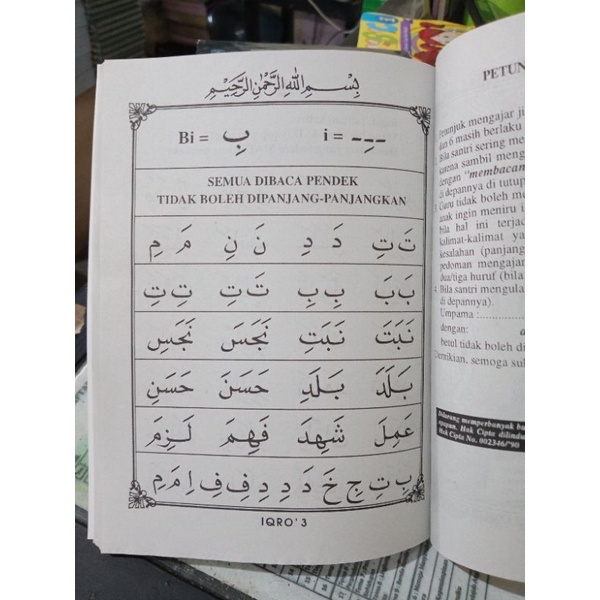 بِسْمِ اللهِ الرَّحْمٰنِ الرَّحِيْمِ
Bi = بِ i = ـِـ
SEMUA DIBACA PENDEK
TIDAK BOLEH DIPANJANG-PANJANGKAN
تَ تِ دَ دِ نَ نِ مَ مِ
بَ بَ بِ بِ تَ تِ تِ تِ
نَبَتَ نَبَتِ نَجَسَ نَجَسِ
بَلَدَ بَلَدِ حَسَنَ حَسَنِ
عَمِلَ شَهِدَ فَهِمَ لَزِمَ
بِ تِ جِ خَ دَ دِ دِ فِ فِ اِ مَ مِ
IQRO' 3
PETUN
Petunjuk mengajar ji
dan 6 masih berlaku
Bila santri sering me
karena sambil meng
dengan "membacan
di depannya di tutup
Guru tidak boleh me
anak ingin meniru i
bila hal ini terjad
kalimat-kalimat ya
kesalahan (panjang
pedoman mengajar
dua/tiga huruf (bila
Bila santri mengula
di depannya).
Umpama :
dengan: a
betul tidak boleh di
Demikian, semoga su
Dilarang memperbanyak bu
apapun. Hak Cipta dilindu
Hak Cipta No. 002346/'90